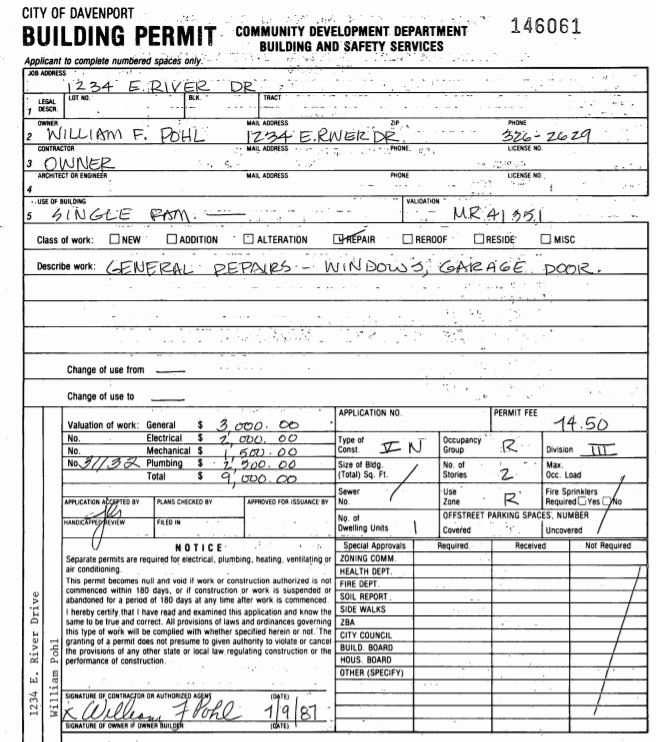 CITY OF DAVENPORT
BUILDING PERMIT COMMUNITY DEVELOPMENT DEPARTMENT 146061
BUILDING AND SAFETY SERVICES
Applicant to complete numbered spaces only.
JOB ADDRESS
1234 E. RIVER DR
1 LEGAL DESCR. LOT NO. BLK. TRACT
OWNER MAIL ADDRESS ZIP PHONE
2 WILLIAM F. POHL 1234 E. RIVER DR. 326-2629
CONTRACTOR MAIL ADDRESS PHONE. LICENSE NO.
3 OWNER
ARCHITECT OR ENGINEER MAIL ADDRESS PHONE LICENSE NO.
4
USE OF BUILDING VALIDATION
5 SINGLE FAM. MR 41351
Class of work: NEW ADDITION ALTERATION REPAIR REROOF RESIDE MISC
Describe work: GENERAL REPAIRS - WINDOWS, GARAGE DOOR.
Change of use from
Change of use to
Valuation of work: General $ 3,000.00
No. Electrical $ 2,000.00
No. Mechanical $ 1,500.00
No. 31132 Plumbing $ 2,500.00
Total $ 9,000.00
APPLICATION ACCEPTED BY PLANS CHECKED BY APPROVED FOR ISSUANCE BY
HANDICAPPED REVIEW FILED IN
APPLICATION NO. PERMIT FEE
74.50
Type of Const. V N Occupancy Group R Division III
Size of Bldg. (Total) Sq. Ft. No. of Stories 2 Max. Occ. Load
Sewer No. Use Zone R Fire Sprinklers Required Yes No
No. of Dwelling Units 1 OFFSTREET PARKING SPACES, NUMBER
Covered Uncovered
NOTICE
Separate permits are required for electrical, plumbing, heating, ventilating or
air conditioning.
This permit becomes null and void if work or construction authorized is not
commenced within 180 days, or if construction or work is suspended or
abandoned for a period of 180 days at any time after work is commenced.
I hereby certify that I have read and examined this application and know the
same to be true and correct. All provisions of laws and ordinances governing
this type of work will be complied with whether specified herein or not. The
granting of a permit does not presume to give authority to violate or cancel
the provisions of any other state or local law regulating construction or the
performance of construction.
SIGNATURE OF CONTRACTOR OR AUTHORIZED AGENT (DATE)
X William F Pohl 1/9/87
SIGNATURE OF OWNER IF OWNER BUILDER (DATE)
Special Approvals Required Received Not Required
ZONING COMM.
HEALTH DEPT.
FIRE DEPT.
SOIL REPORT
SIDE WALKS
ZBA
CITY COUNCIL
BUILD. BOARD
HOUS. BOARD
OTHER (SPECIFY)
1234 E. River Drive
William Pohl